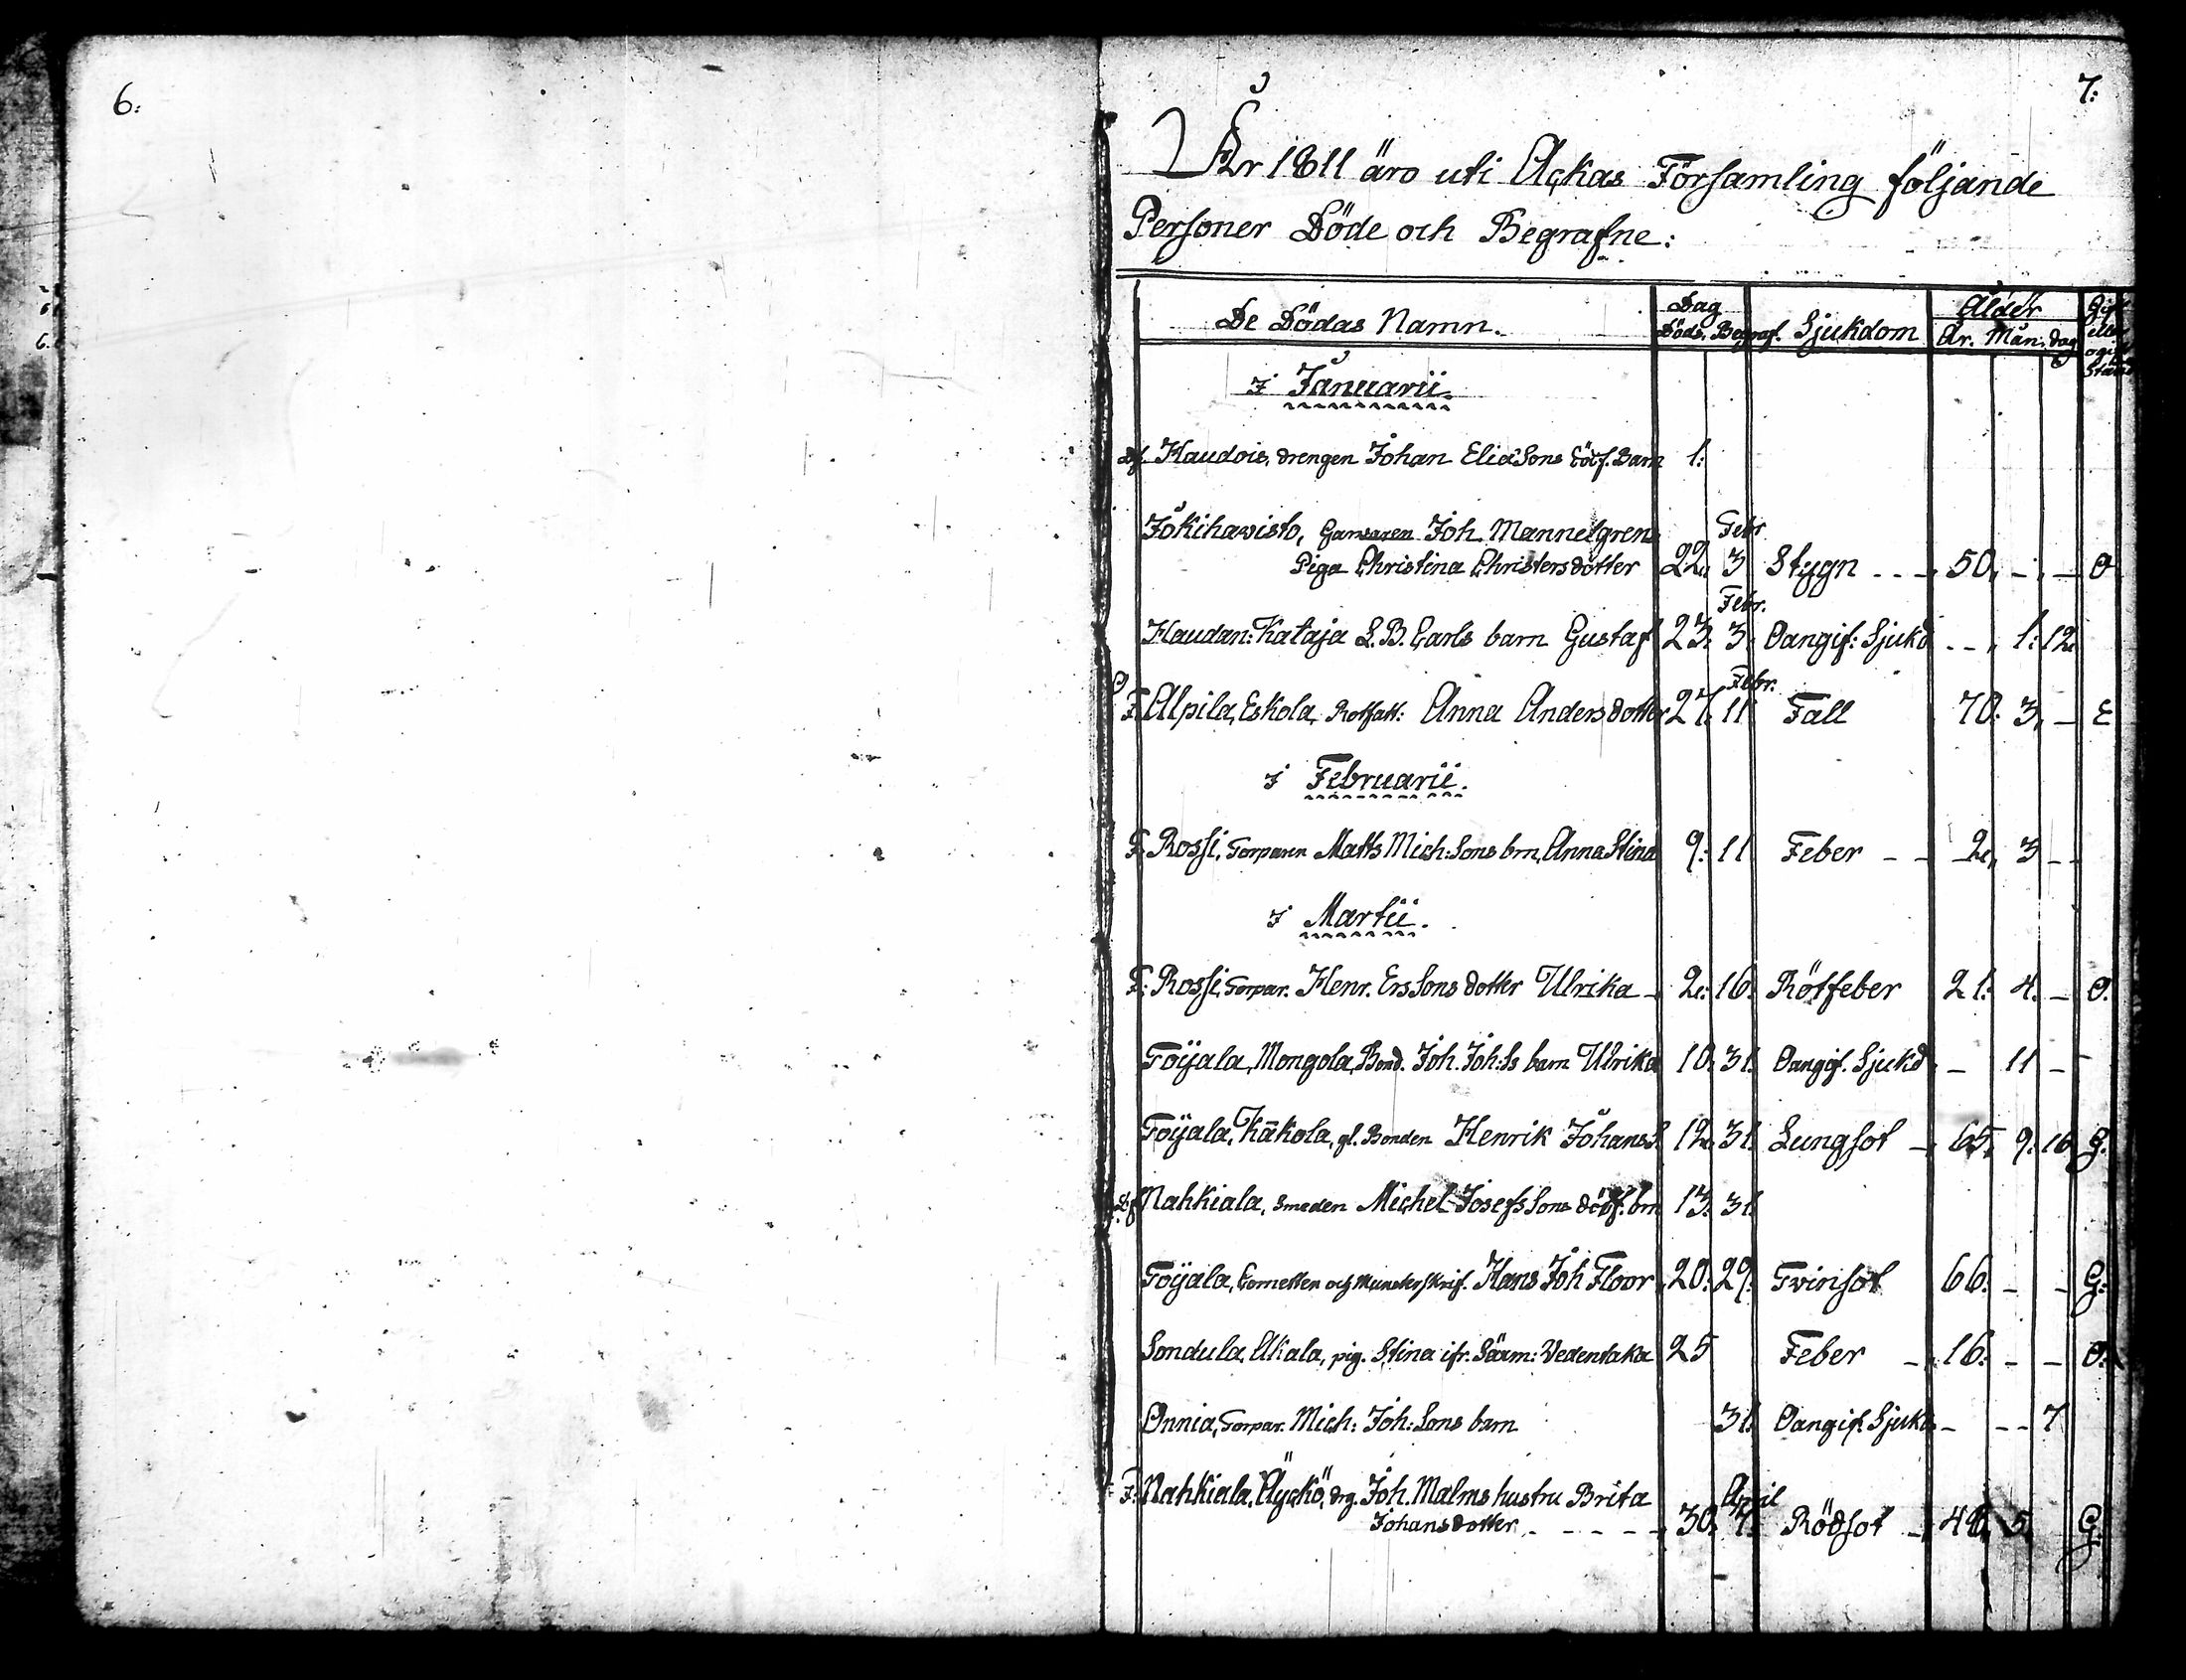 6:
7:
År 1811 äro uti Ackas Församling följande
Personer Döde och Begrafne:
De Dödas Namn. Dag Döds. Begraf. Sjukdom Ålder År. Mån. dag Gift eller ogift Stånd
i Januarii.
Df. Haudois, drengen Johan EliæSons död f. Barn 1:
Jokihavisto, Garvaren Joh. Mannelgrens Febr.
Piga Christina Christersdotter 22. 3 Stygn - - 50. - - O
Febr.
Haudan: Kataja S. B. Carls barn Gustaf 23. 3. Oangif: Sjukd - - 1: 12.
Febr.
F. Alpila, Eskola, Rotfatt: Anna Andersdotter 27. 11 Fall 70: 3. - E
i Februarii.
F. Rossi, Torparen Matts Mich:Sons brn, Anna Stina 9: 11 Feber - - 2. 3 - -
i Martii.
F: Rossi, Torpar. Henr. ErsSons dotter Ulrika - 2: 16. Rötfeber 21: 4. - O.
Toijala, Mongola, Bond. Joh. Joh:Ss barn Ulrika 10. 31. Oangif. Sjukd - 11 - -
Toijala, Kākola, gl. Bonden Henrik JohansS 12. 31. Lungsot - 65. 9. 16 G.
Df Nahkiala, Smeden Michel JosefsSons död f. brn 13. 31.
Toijala, Cornetten och Munsterskrif. Hans Joh Floor 20. 29. Tvinsot 66. - - G:
Sondula, Alkala, pig. Stina ifr. Säxm: Vedentaka 25 Feber - 16: - - O.
Onnia, Torpar. Mich: Joh:Sons barn 31. Oangif. Sjukd - - - 7
F. Nahkiala, Äyckö, drg. Joh. Malms hustru Brita April
Johansdotter - - - - - 30. 7. Rödsot - 5. G.